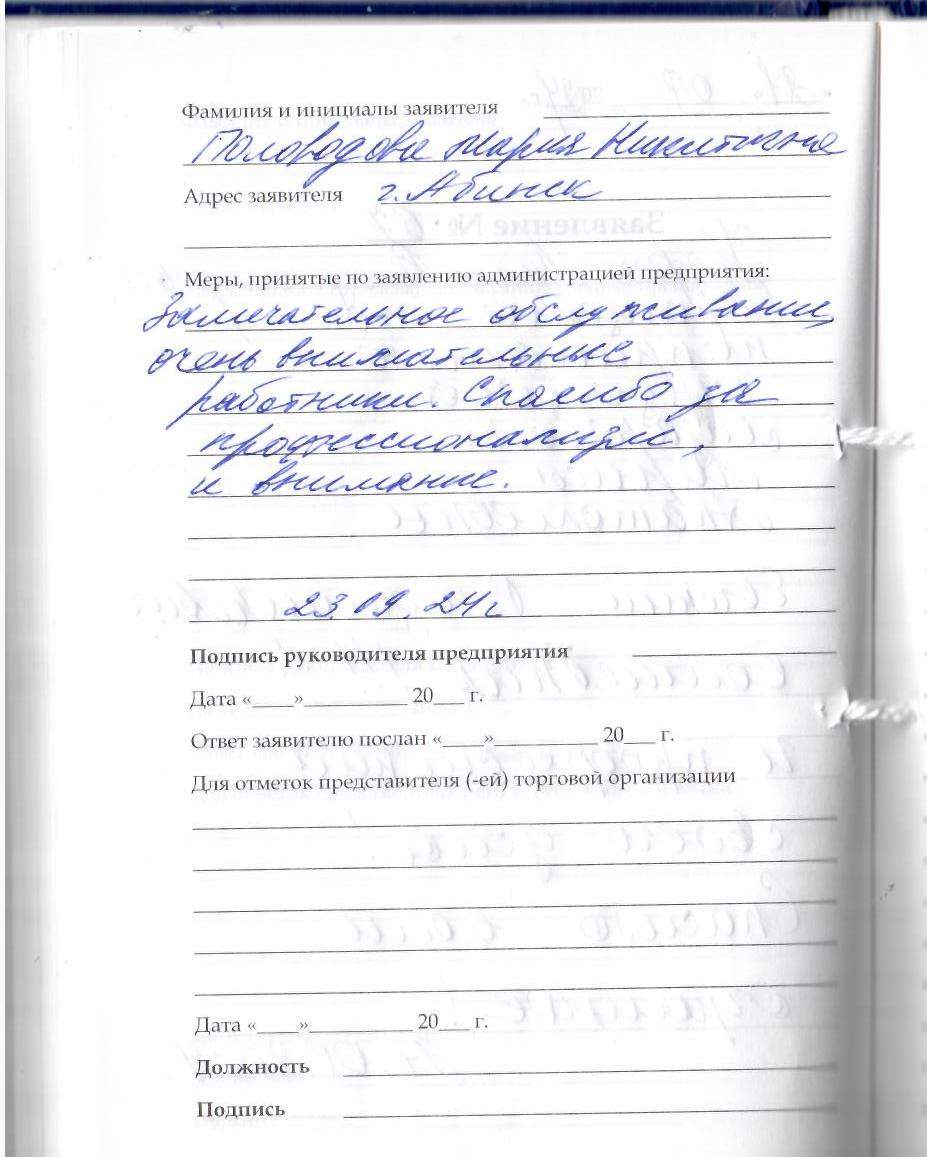 Фамилия и инициалы заявителя
Половодова Мария Никитична
Адрес заявителя г. Абинск
Меры, принятые по заявлению администрацией предприятия:
Замечательное обслуживание,
очень внимательные
работники. Спасибо за
профессионализм,
и внимание.
23.09.24г
Подпись руководителя предприятия
Дата «____»__________ 20___ г.
Ответ заявителю послан «____»__________ 20___ г.
Для отметок представителя (-ей) торговой организации
Дата «____»__________ 20___ г.
Должность
Подпись